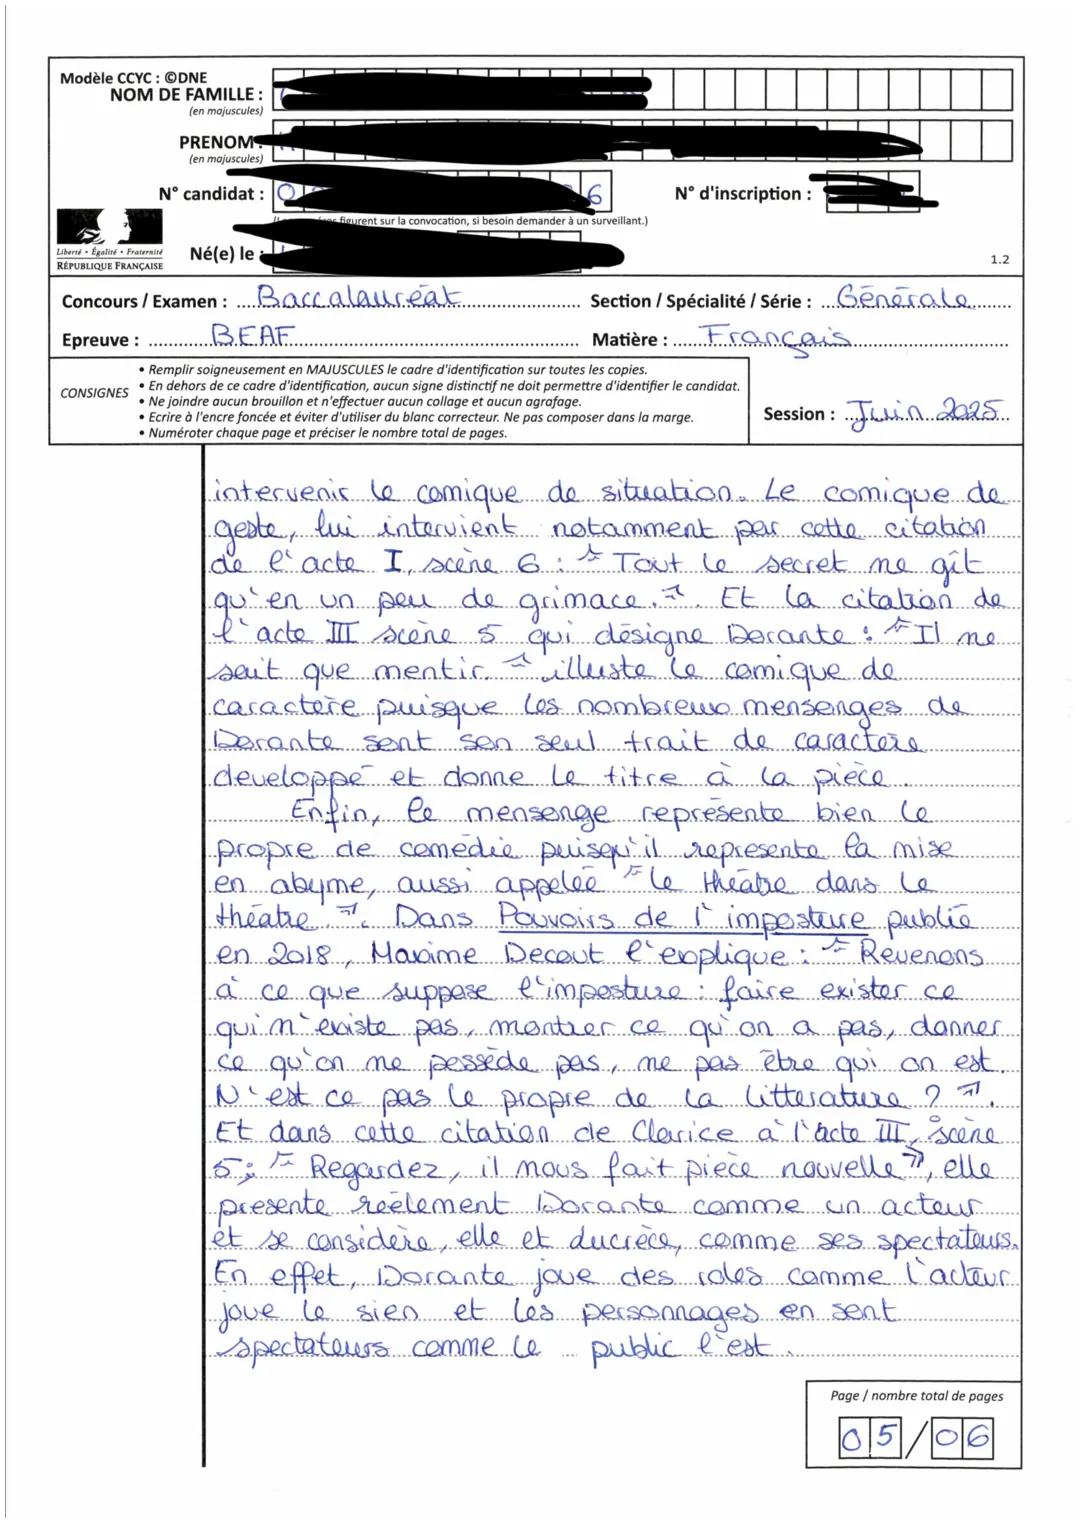 Modèle CCYC : ©DNE
NOM DE FAMILLE :
(en majuscules)
PRENOM :
(en majuscules)
N° candidat : 0 6 N° d'inscription :
figurent sur la convocation, si besoin demander à un surveillant.)
Liberté • Égalité • Fraternité
RÉPUBLIQUE FRANÇAISE
Né(e) le :
1.2
Concours / Examen : Baccalauréat Section / Spécialité / Série : Générale
Epreuve : BEAF Matière : Français
CONSIGNES
• Remplir soigneusement en MAJUSCULES le cadre d'identification sur toutes les copies.
• En dehors de ce cadre d'identification, aucun signe distinctif ne doit permettre d'identifier le candidat.
• Ne joindre aucun brouillon et n'effectuer aucun collage et aucun agrafage.
• Ecrire à l'encre foncée et éviter d'utiliser du blanc correcteur. Ne pas composer dans la marge.
• Numéroter chaque page et préciser le nombre total de pages.
Session : Juin 2025
intervenir le comique de situation. Le comique de
geste, lui intervient notamment par cette citation
de l'acte I, scène 6 : « Tout le secret ne gît
qu'en un peu de grimace. ». Et la citation de
l'acte III scène 5 qui désigne Dorante : « Il ne
sait que mentir. » illuste le comique de
caractère puisque les nombreux mensonges de
Dorante sont son seul trait de caractère
developpé et donne le titre à la pièce.
Enfin, le mensonge représente bien le
propre de comédie puisqu'il représente la mise
en abyme, aussi appelée « le théâtre dans le
théâtre ». Dans Pouvoirs de l'imposture publié
en 2018, Maxime Decout l'explique : « Revenons
à ce que suppose l'imposture : faire exister ce
qui n'existe pas, montrer ce qu'on a pas, donner
ce qu'on ne possède pas, ne pas être qui on est.
N'est ce pas le propre de la litterature ? ».
Et dans cette citation de Clarice à l'acte III, scène
5 : « Regardez, il nous fait pièce nouvelle », elle
présente réélement Dorante comme un acteur
et se considère, elle et ducrèce, comme ses spectateurs.
En effet, Dorante joue des roles comme l'acteur
joue le sien et les personnages en sont
spectateurs comme le public l'est.
Page / nombre total de pages
05/06